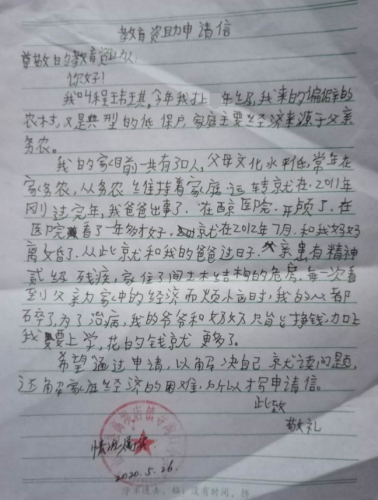 教育资助申请信
尊敬的教育资助:
你好!
我叫程琪,今年我上 年级,我来自偏僻的
农村,又是典型的低保户,家庭主要经济来源于父亲
务农。
我的家目前一共有3口人,父母文化水平低,常年在
家务农,从务农维持着家庭运转就在2011年
刚过完年,我爸爸出事了.在西京医院.开颅了.在
医院看了一年多才好.就在2012年7月,和我妈妈
离婚了.从此就和我的爸爸过日子.父亲患有精神
贰级残疾,家住了间土木结构的危房.每一次看
到父亲为家中的经济而烦心时,我的心都
碎了,为了治病,我的爷爷和奶奶挣钱加上
我要上学,花的钱就更多了。
希望通过申请,以解决自己就读问题,
还解家庭经济的困难.所以才写申请信。
此致
敬礼
情况属实
2020.5.26.